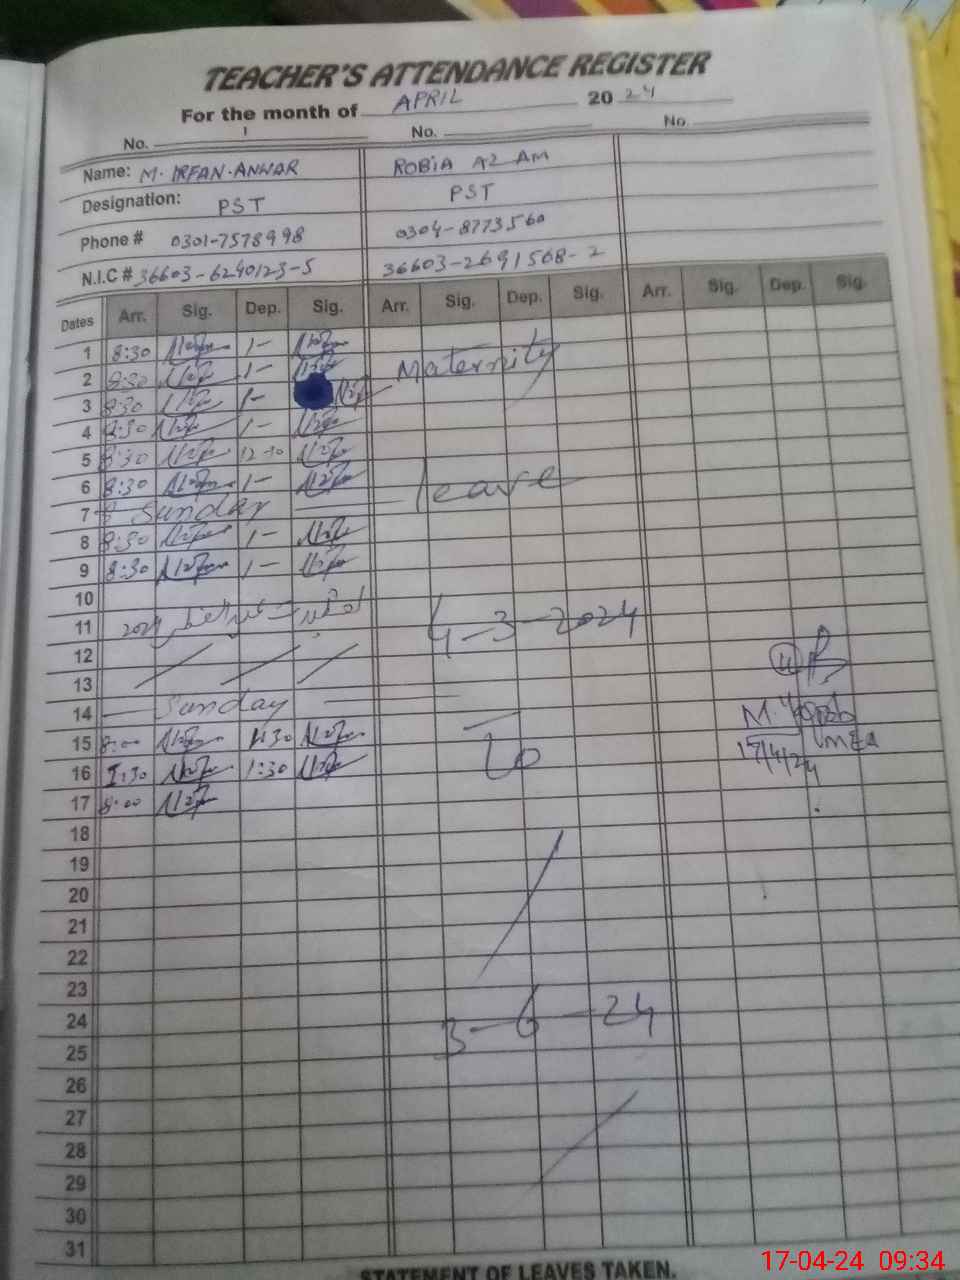 TEACHER'S ATTENDANCE REGISTER
For the month of APRIL 2024
No. 1 No. No.
Name: M. IRFAN. ANWAR ROBiA AZ AM
Designation: PST PST
Phone # 0301-7578998 0304-8773560
N.I.C # 36603-6240123-5 36603-2691568-2
Dates Arr. Sig. Dep. Sig. Arr. Sig. Dep. Sig. Arr. Sig. Dep. Sig.
1 8:30 1-
2 8:30 1- Maternity
3 8:30 1-
4 8:30 1-
5 8:30 12-30
6 8:30 1- leave
7 Sunday
8 8:30 1-
9 8:30 1-
10
11 2024 4-3-2024
12
13
14 Sunday
15 8:00 1:30 M. MEA
16 1:30 to 17/4/24
17 8:00
18
19
20
21
22
23
24 3-6-24
25
26
27
28
29
30
31
STATEMENT OF LEAVES TAKEN.
17-04-24 09:34